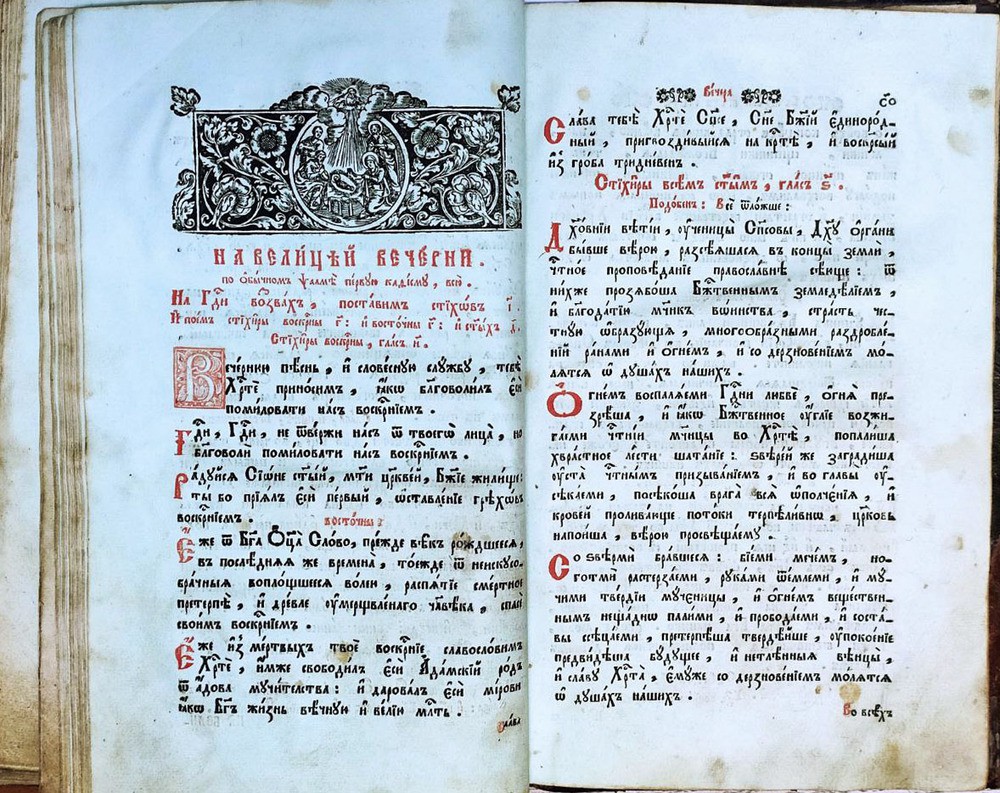 НА ВЕЛИ́ЦѢЙ ВЕЧЕ́РНИ.
по ѻ҆бы́чномъ ѱалмѣ̀ пе́рвую каѳі́сму, всю̀.
На Гдⷭ҇и воззва́хъ, поста́вимъ стїхѡ́въ і҃.
И҆ пое́мъ стїхи̑ры воскрⷭ҇ны г҃: и҆ восто́чны г҃: и҆ ст҃ы́хъ д҃.
Стїхи̑ры воскрⷭ҇ны, гла́съ и҃.
Вече́рнюю пѣ́снь, и҆ слове́сную слу́жбу, тебѣ̀
Хрⷭ҇тѐ прино́симъ, ꙗ҆́кѡ бл҃говоли́лъ є҆сѝ
поми́ловати на́съ воскрⷭ҇нїемъ.
Гдⷭ҇и, Гдⷭ҇и, не ѿве́ржи на́съ ѿ твоегѡ̀ лица̀, но
бл҃говолѝ поми́ловати на́съ воскрⷭ҇нїемъ.
Ра́дуйсѧ Сїѡ́не ст҃ы́й, мт҃и цр҃кве́й, Бж҃їе жили́ще:
ты́ бо прїѧ́лъ є҆сѝ пе́рвый, ѡ҆ставле́нїе грѣхѡ́въ
воскрⷭ҇нїемъ.
восто́чны:
Е҆́же ѿ Бг҃а Ѻ҆ц҃а̀ Сло́во, пре́жде вѣ̑къ ро́ждшеесѧ,
въ послѣ́днѧѧ же времена̀, то́ежде ѿ неискусо-
бра́чныѧ воплощшеесѧ во́лею, распѧ́тїе сме́ртное
претерпѣ̀, и҆ дре́вле ᲂу҆мерщвле́наго чл҃вѣ́ка, спасѐ
свои́мъ воскрⷭ҇нїемъ.
Е҆́же и҆з̾ ме́ртвыхъ твоѐ воскрⷭ҇нїе славосло́вимъ
Хрⷭ҇тѐ, и҆́мже свободи́лъ є҆сѝ А҆да́мскїй ро́дъ
ѿ а҆́дова мучи́тельства: и҆ дарова́лъ є҆сѝ мі́рови
ꙗ҆́кѡ Бг҃ъ жи́знь вѣ́чную и҆ ве́лїю млⷭ҇ть.
сла́ва
Ве́чера
со҃
Сла́ва тебѣ̀ Хрⷭ҇тѐ Сп҃се, Сн҃е Бж҃їй є҆диноро́д-
ный, пригвозди́выйсѧ на крⷭ҇тѣ̀, и҆ воскрⷭ҇сы́й
и҆з̾ гро́ба тридне́венъ.
Стїхи̑ры всѣ́мъ ст҃ы́мъ, гла́съ ѕ҃.
Подо́бенъ: Всѐ ѿло́жше:
Дꙋхо́внїи вѣті́и, ᲂу҆ченицы̀ Сп҃совы, Дх҃у ѻ҆рга́ны
бы́вше вѣ́рою, разсѣ́яшасѧ въ концы̀ землѝ,
чтⷭ҇ное проповѣ́данїе правосла́внѣ сѣ́юще: ѿ
ни́хже прозѧбо́ша Бжⷭ҇твеннымъ земледѣ́лїемъ,
и҆ благода́тїю мч҃нкъ во́инства, стра́сть чес-
тну́ю ѡ҆бразу́юща, многоѡбра́зными раздробле-
нїй ра́нами и҆ ѻ҆гне́мъ, и҆ со дерзнове́нїемъ мо-
лѧ́тсѧ ѡ҆ душа́хъ на́шихъ.
Ѻ҆гне́мъ воспалѧ́еми Гдⷭ҇ни любвѐ, ѻ҆гнѧ̀ пре-
зрѣ́ша, и҆ ꙗ҆́кѡ Бжⷭ҇твенное ᲂу҆́глїе возжи-
га́еми чтⷭ҇ні́и мч҃нцы во Хрⷭ҇тѣ̀, попали́ша
хвра́стное ле́сти шата́нїе: ѕвѣре́й же загради́ша
ᲂу҆ста̀ чтⷭ҇нымъ призыва́нїемъ, и҆ во главы̀ ᲂу҆-
сѣка́еми, посѣко́ша врага̀ всѧ̑ ѡ҆полче́нїѧ, и҆
крове́й пролива́юще пото́ки терпѣли́вно, цр҃ковь
напои́ша, вѣ́рою просвѣща́ему.
Со ѕвѣрмѝ бра́вшесѧ: бїе́ми мече́мъ, но-
готмѝ растерза́еми, рука́ми ѿе́млеми, и҆ му́-
чими тве́рдїи му́ченицы, и҆ ѻ҆гне́мъ веще́ствен-
нымъ неща́днѡ пали́ми, и҆ пробода́еми, и҆ соста́-
вы сѣца́еми, претерпѣ́ша твердѣ́йше, ᲂу҆покое́нїе
предви́дѣша бу́дущее, и҆ нетлѣ́нныѧ вѣнцы̀,
и҆ сла́ву Хрⷭ҇та̀, є҆му́же со дерзнове́нїемъ мо́лѧтсѧ
ѡ҆ душа́хъ на́шихъ.
Во всѣ́хъ